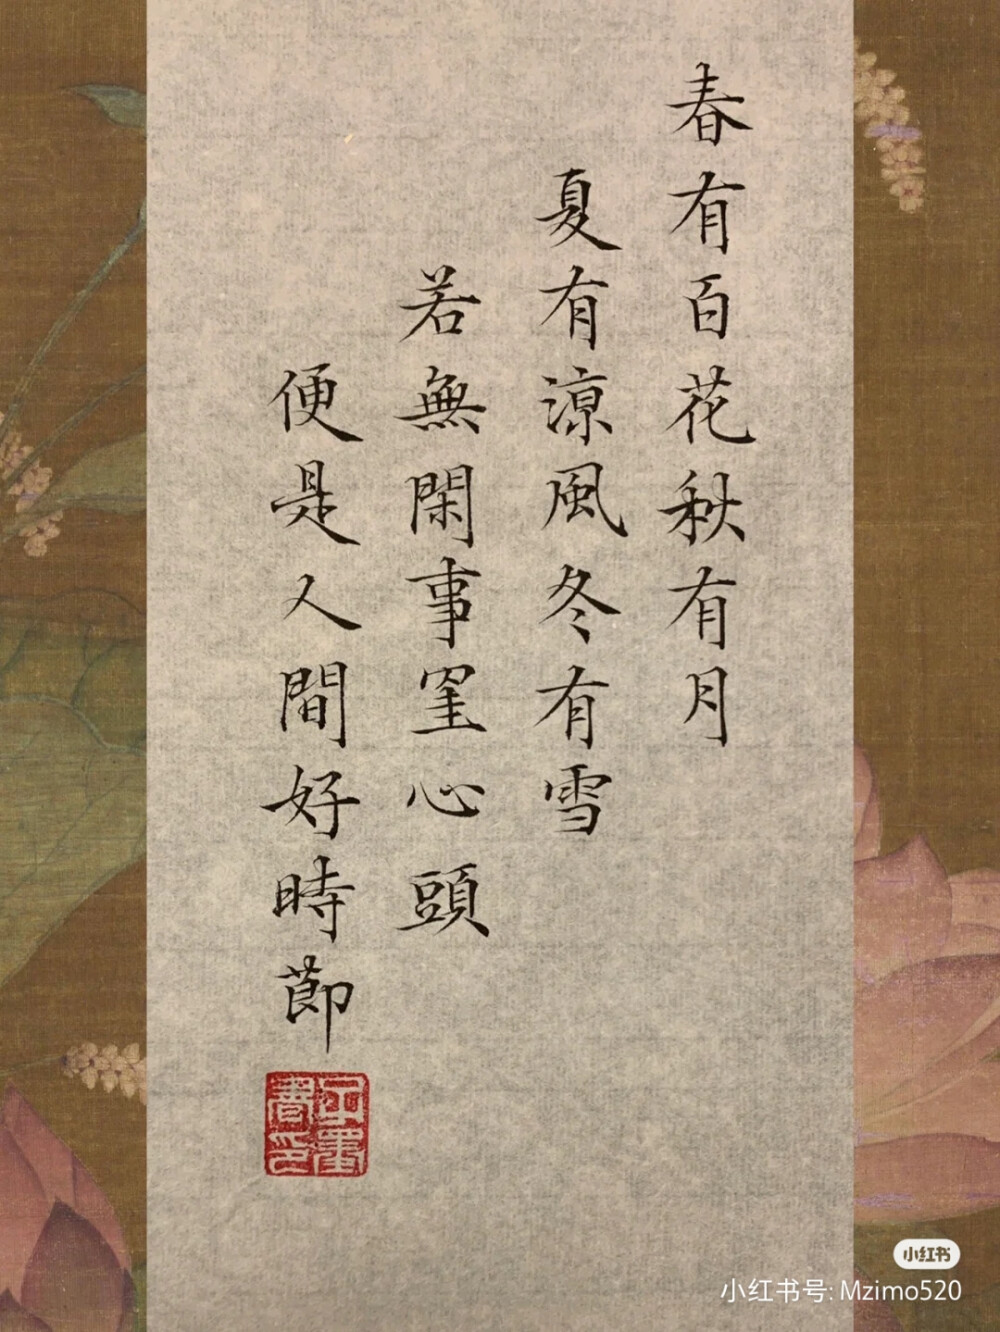 春有百花秋有月
夏有涼風冬有雪
若無閑事罣心頭
便是人間好時莭
小红书
小红书号: Mzimo520